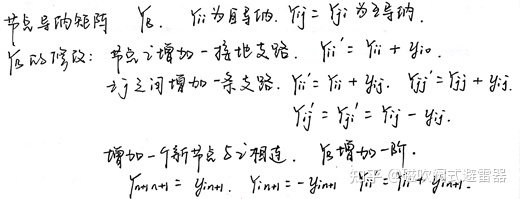 节点导纳矩阵 Y_B. Y_ii 为自导纳. Y_ij = Y_ji 为互导纳.
Y_B 的修改: 节点 i 增加一接地支路. Y_ii' = Y_ii + y_io.
ij 之间增加一条支路. Y_ii' = Y_ii + y_ij. Y_jj' = Y_jj + y_ij.
Y_ij' = Y_ji' = Y_ij - y_ij.
增加一个新节点与 i 相连. Y_B 增加一阶.
Y_n+1n+1 = y_in+1. Y_in+1 = -y_in+1 Y_ii' = Y_ii + y_in+1.
知乎 @磁吹阀式避雷器